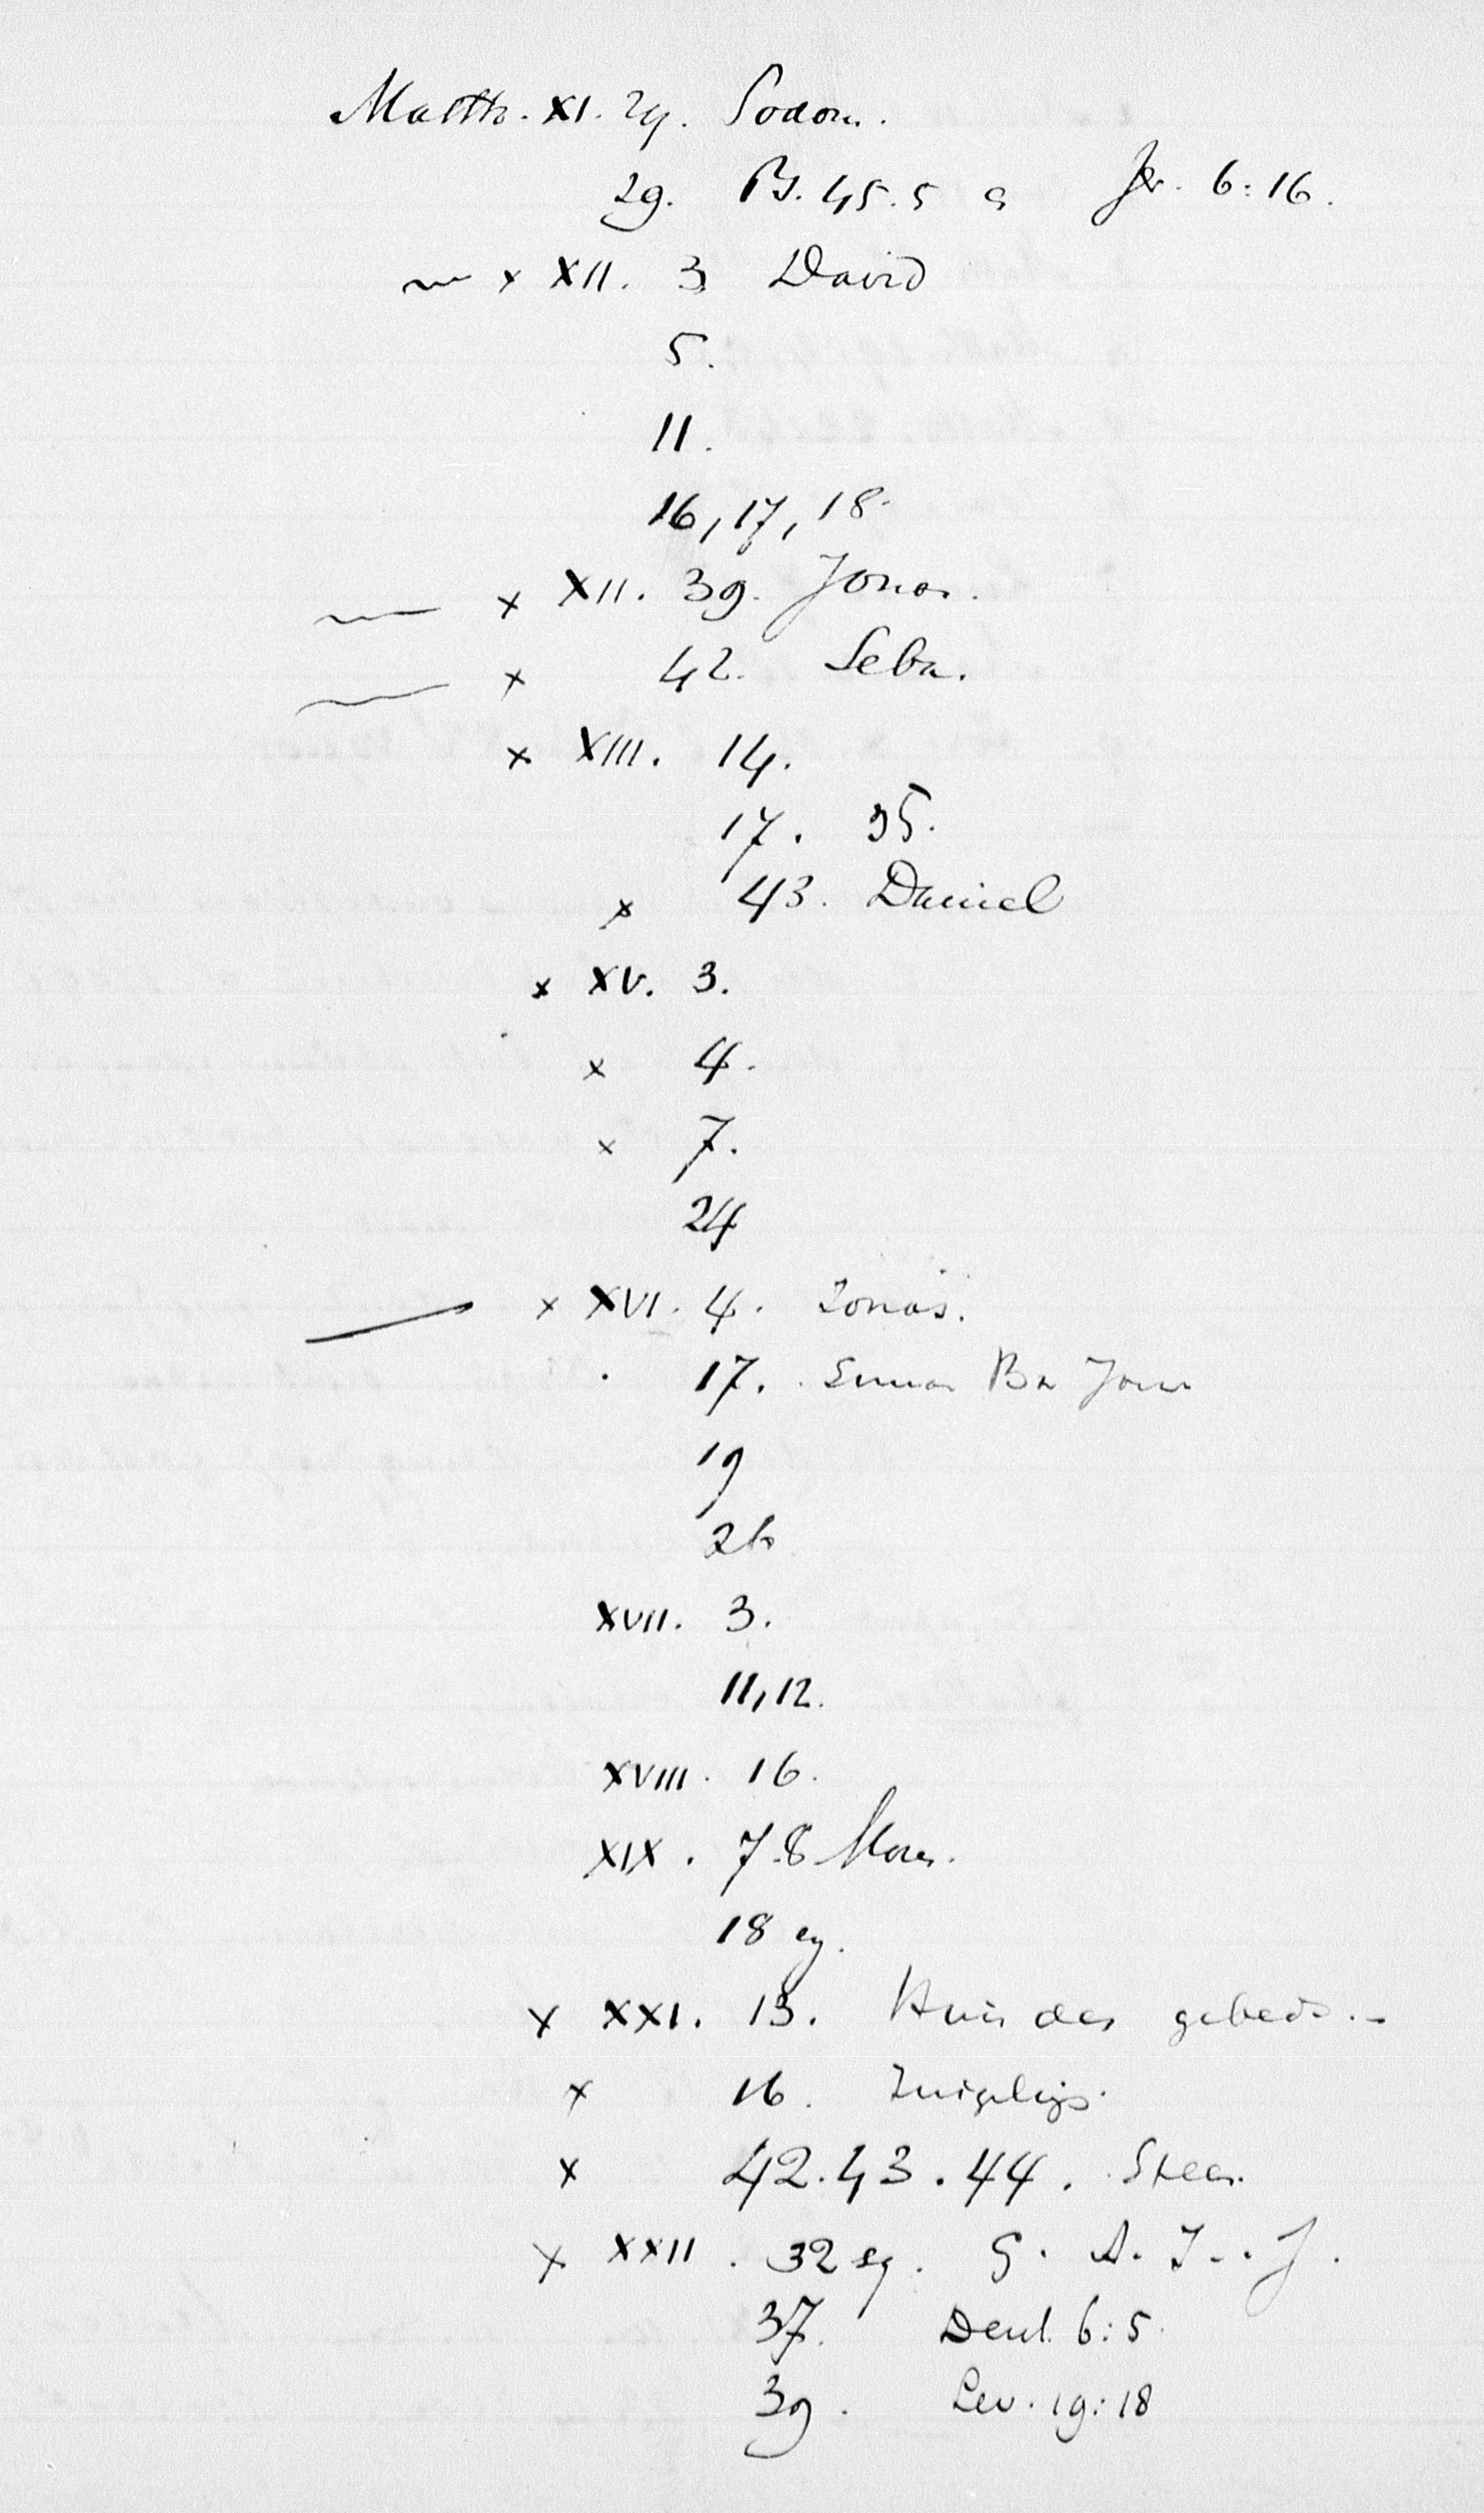 Matth. XI. 24. Sodom.
29. Ps. 45.5 a Jer. 6:16.
~ x XII. 3 David
5.
11.
16, 17, 18.
— x XII. 39. Jonas.
— x 42. Seba.
x XIII. 14.
17. 35.
x 43. Daniel
x XV. 3.
x 4.
x 7.
24
— x XVI. 4. Jonas.
17. Simon Bar Jona
19
26
XVII. 3.
11, 12.
XVIII. 16.
XIX. 7.8 Mozes.
18 
x XXI. 13. Huis des gebeds.-
x 16. Zuigelings.
x 42.43.44. Steen.
x XXII. 32 sq. G. A. I.. J.
37. Deut. 6:5.
39. Lev. 19:18